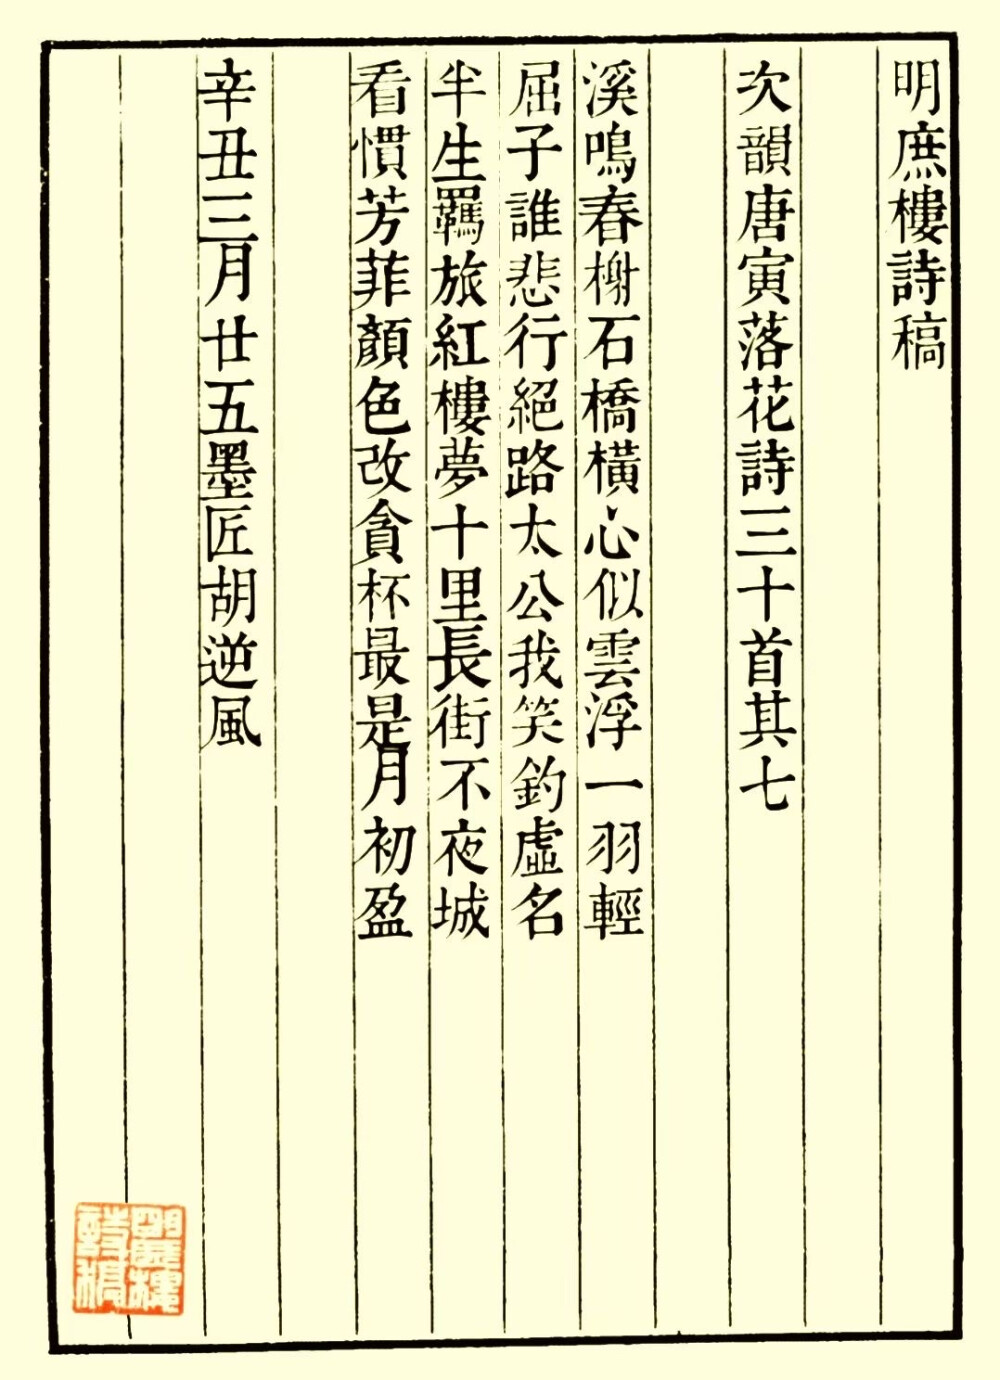 明庶樓詩稿
次韻唐寅落花詩三十首其七
溪鳴春榭石橋橫心似雲浮一羽輕
屈子誰悲行絕路太公我笑釣虛名
半生羈旅紅樓夢十里長街不夜城
看慣芳菲顏色改貪杯最是月初盈
辛丑三月廿五墨匠胡逆風
明庶樓詩稿